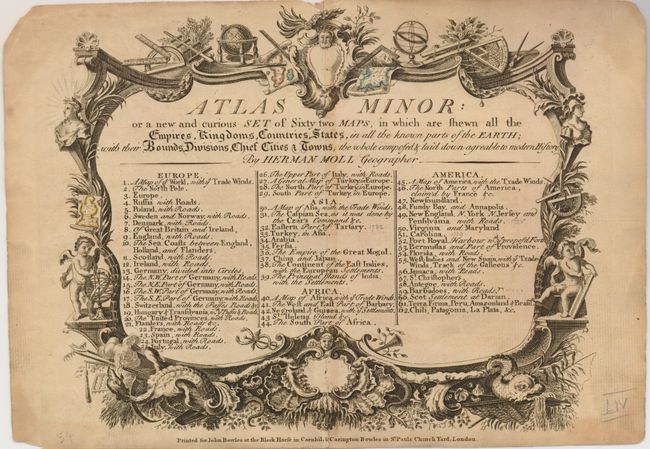 ATLAS MINOR:
or a new and curious SET of Sixty two MAPS, in which are shewn all the
Empires, Kingdoms, Countries, States, in all the known parts of the EARTH;
with their Bounds, Divisions, Chief Cities & Towns, the whole composed & laid down agreable to modern History
By HERMAN MOLL Geographer
EUROPE.
1. A Map of ye World, with ye Trade Winds.
2. The North Pole.
3. Europe.
4. Russia with Roads.
5. Poland, with Roads.
6. Sweden and Norway, with Roads.
7. Denmark, with Roads.
8. Of Great Britain and Ireland,
9. England, with Roads.
10. The Sea Coasts between England,
Holland and Flanders.
11. Scotland, with Roads.
12. Ireland, with Roads.
13. Germany, divided into Circles.
14. The N.W. Part of Germany, with Roads.
15. The N.E. Part of Germany, with Roads.
16. The S.W. Part of Germany, with Roads.
17. The S.E. Part of Germany, with Roads.
18. Switzerland, with the Passes, Roads &c.
19. Hungary & Transilvania, with Roads.
20. The United Provinces, with Roads.
21. Flanders, with Roads &c.
22. France, with Roads.
23. Spain, with Roads.
24. Portugal, with Roads.
25. Italy, with Roads.
26. The Upper Part of Italy, with Roads.
27. A General Map of Turkey in Europe.
28. The North Part of Turkey in Europe.
29. South Part of Turkey, in Europe.
ASIA
30. A Map of Asia, with the Trade Winds.
31. The Caspian Sea, as it was done by
the Czar's Command &c.
32. Eastern Part of Tartary.
33. Turkey, in Asia.
34. Arabia.
35. Persia.
36. The Empire of the Great Mogul.
37. China and Japan.
38. The Continent of the East Indies,
with the European Settlements.
39. The Principal Islands of India,
with the Settlements.
AFRICA.
40. A Map of Africa, with ye Trade Winds.
41. The West and East Part of Barbary.
42. Negroland & Guinea, with ye Settlements.
43. St. Hellena Island.
44. The South Part of Africa.
AMERICA.
45. A Map of America, with the Trade Winds.
46. The North Parts of America,
claimed by France &c.
47. Newfoundland.
48. Fundy Bay, and Annapolis.
49. New England, N. York N. Jersey and
Pensilvania with Roads.
50. Virginia and Maryland
51. Carolina.
52. Port Royal Harbour, with ye Propos'd Fort
53. Bermudas and Part of Providence
54. Florida, with Roads.
55. West Indies and New Spain, with ye Trade
Winds, Tract of ye Galleons &c.
56. Jamaca, with Roads.
57. St. Christophers.
58. Antegoa, with Roads.
59. Barbadoes, with Roads.
60. Scots Settlement at Darian.
61. Terra Firma, Peru, Amazonland & Brasil.
62. Chili, Patagonia, La Plata, &c.
54
LIV
Printed for John Bowles at the Black Horse in Cornhil, & Carington Bowles in St. Pauls Church Yard, London.